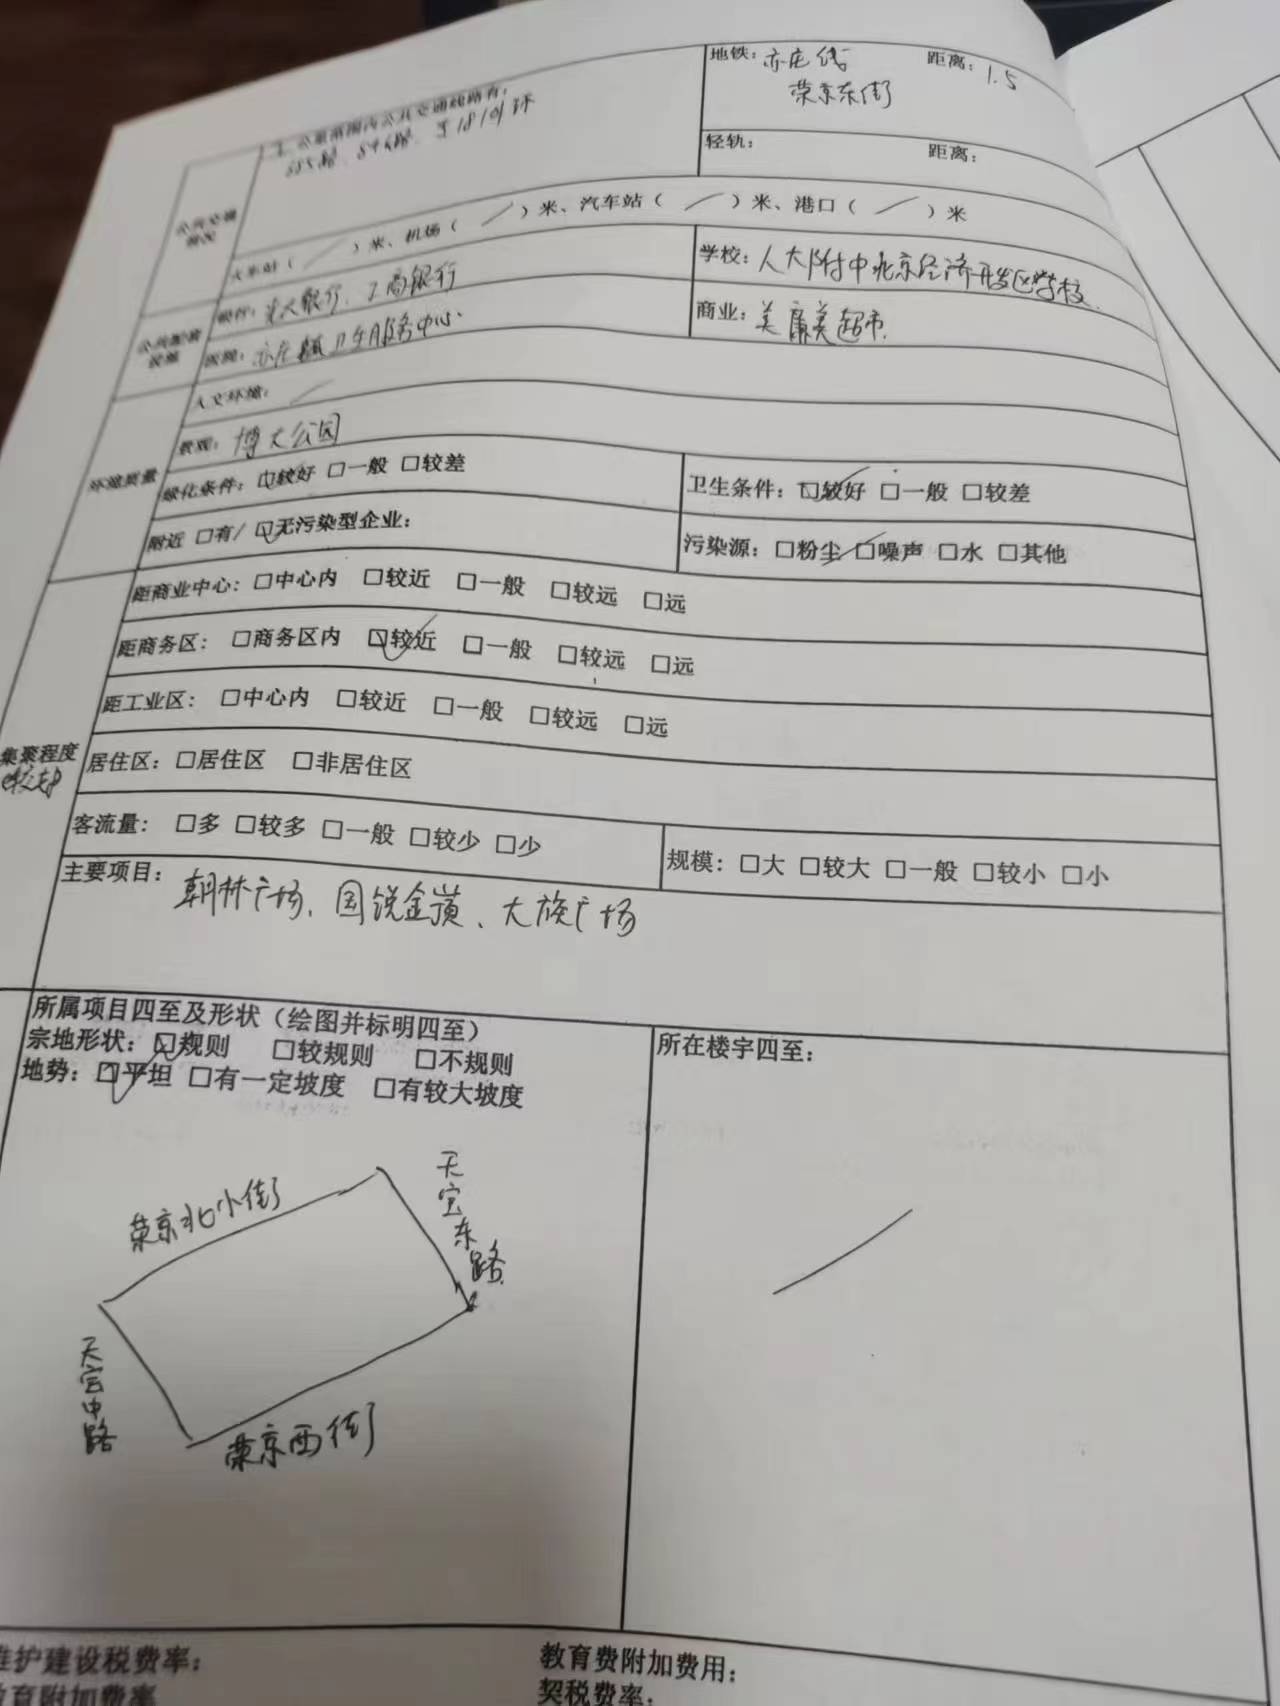 地铁：亦庄线 距离：1.5
荣京东街
1 公里范围内公共交通线路有：
轻轨： 距离：
公共交通
情况
火车站（ ／ ）米、机场（ ／ ）米、汽车站（ ／ ）米、港口（ ／ ）米
公共配套
设施
银行：光大银行、工商银行
学校：人大附中北京经济开发区学校
医院：亦庄镇卫生服务中心.
商业：美廉美超市.
环境质量
人文环境：／
景观：博大公园
绿化条件：☑较好 □一般 □较差
卫生条件：☑较好 □一般 □较差
附近 □有/ ☑无污染型企业：
污染源：□粉尘 □噪声 □水 □其他
集聚程度
较好
距商业中心：□中心内 □较近 □一般 □较远 □远
距商务区：□商务区内 ☑较近 □一般 □较远 □远
距工业区：□中心内 □较近 □一般 □较远 □远
居住区：□居住区 □非居住区
客流量：□多 □较多 □一般 □较少 □少
规模：□大 □较大 □一般 □较小 □小
主要项目：朝林广场、国锐金嵿、大族广场
所属项目四至及形状（绘图并标明四至）
宗地形状：☑规则 □较规则 □不规则
地势：☑平坦 □有一定坡度 □有较大坡度
所在楼宇四至：
荣京北小街
天宝东路
天宝中路
荣京西街
维护建设税费率：
教育费附加费用：
教育附加费率
契税费率：